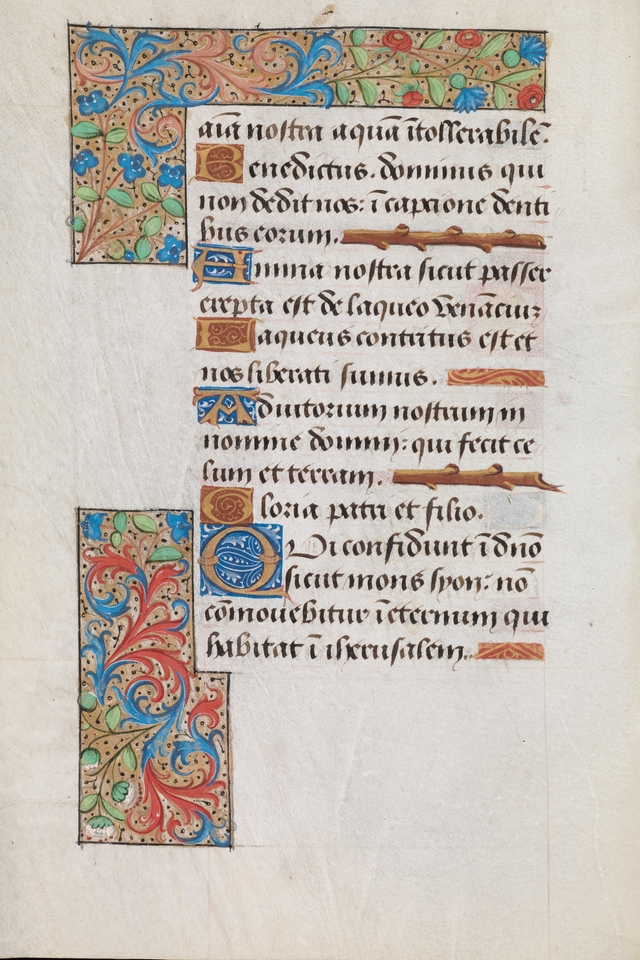 aīa nostra aquā ītollerabilē.
Benedictus. dominus qui
non dedit nos: ī capcione denti
bus eorum.
Anima nostra sicut passer
erepta est de laqueo venāciuz
Laqueus contritus est et
nos liberati sumus.
Adiutorium nostrum in
nomine domini: qui fecit ce
lum et terram.
Gloria patri et filio.
Qui confidunt ī dn̄o
sicut mons syon: nō
cōmouebitur ī eternum qui
habitat ī iherusalem.